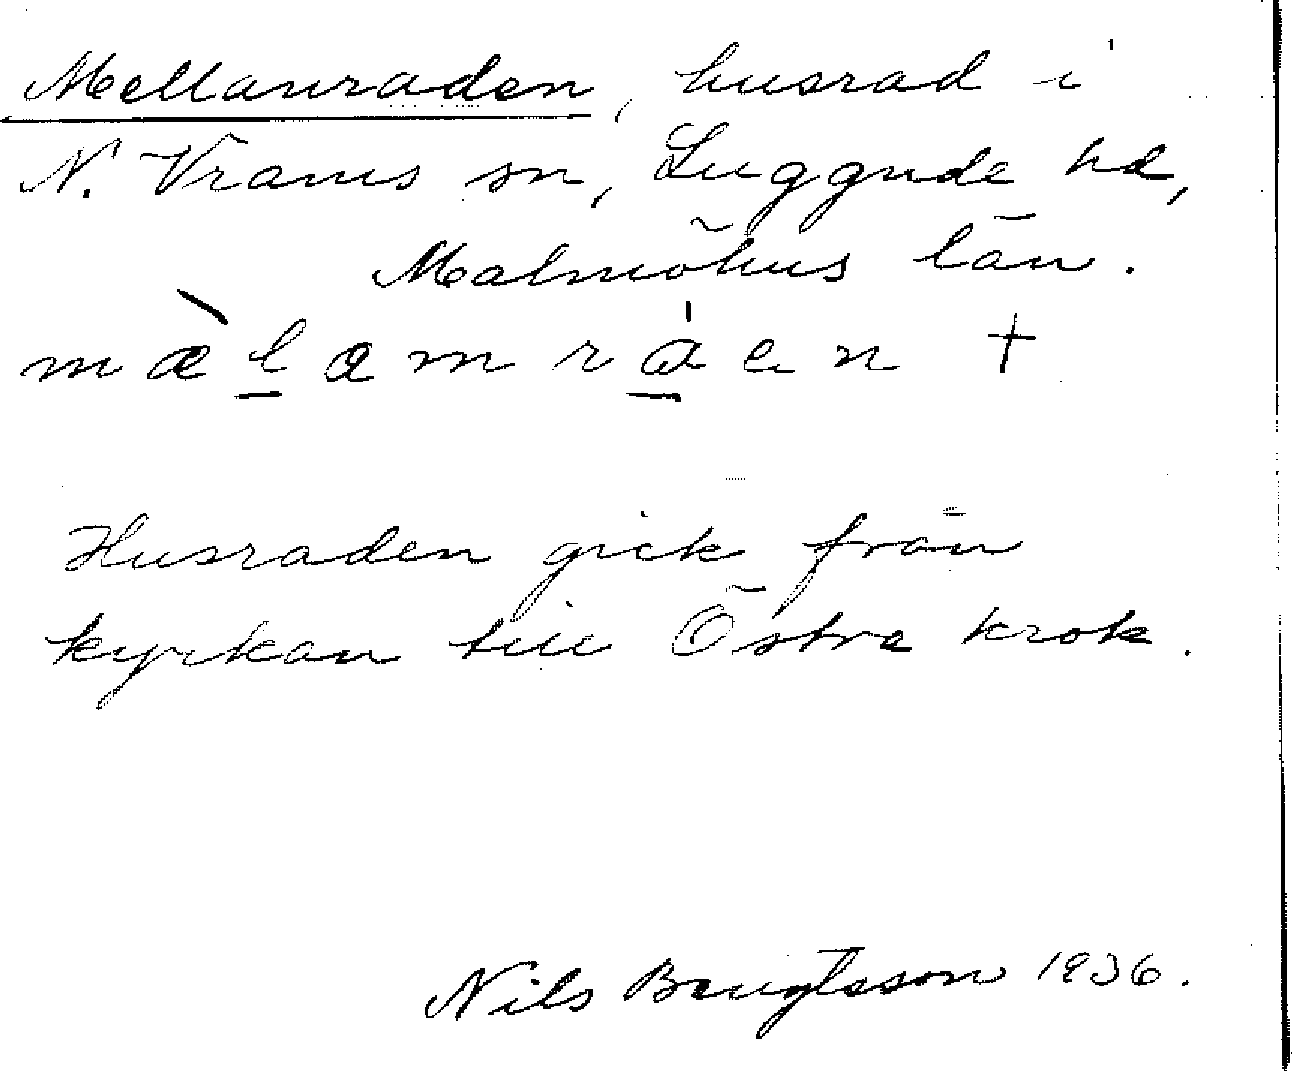 Mellanraden, husrad i
N. Vrams sn, Luggude hd,
Malmöhus län.
mæ̀l̲amrȧ̲en +
Husraden gick från
kyrkan till Östra krok.
Nils Bengtsson 1936.